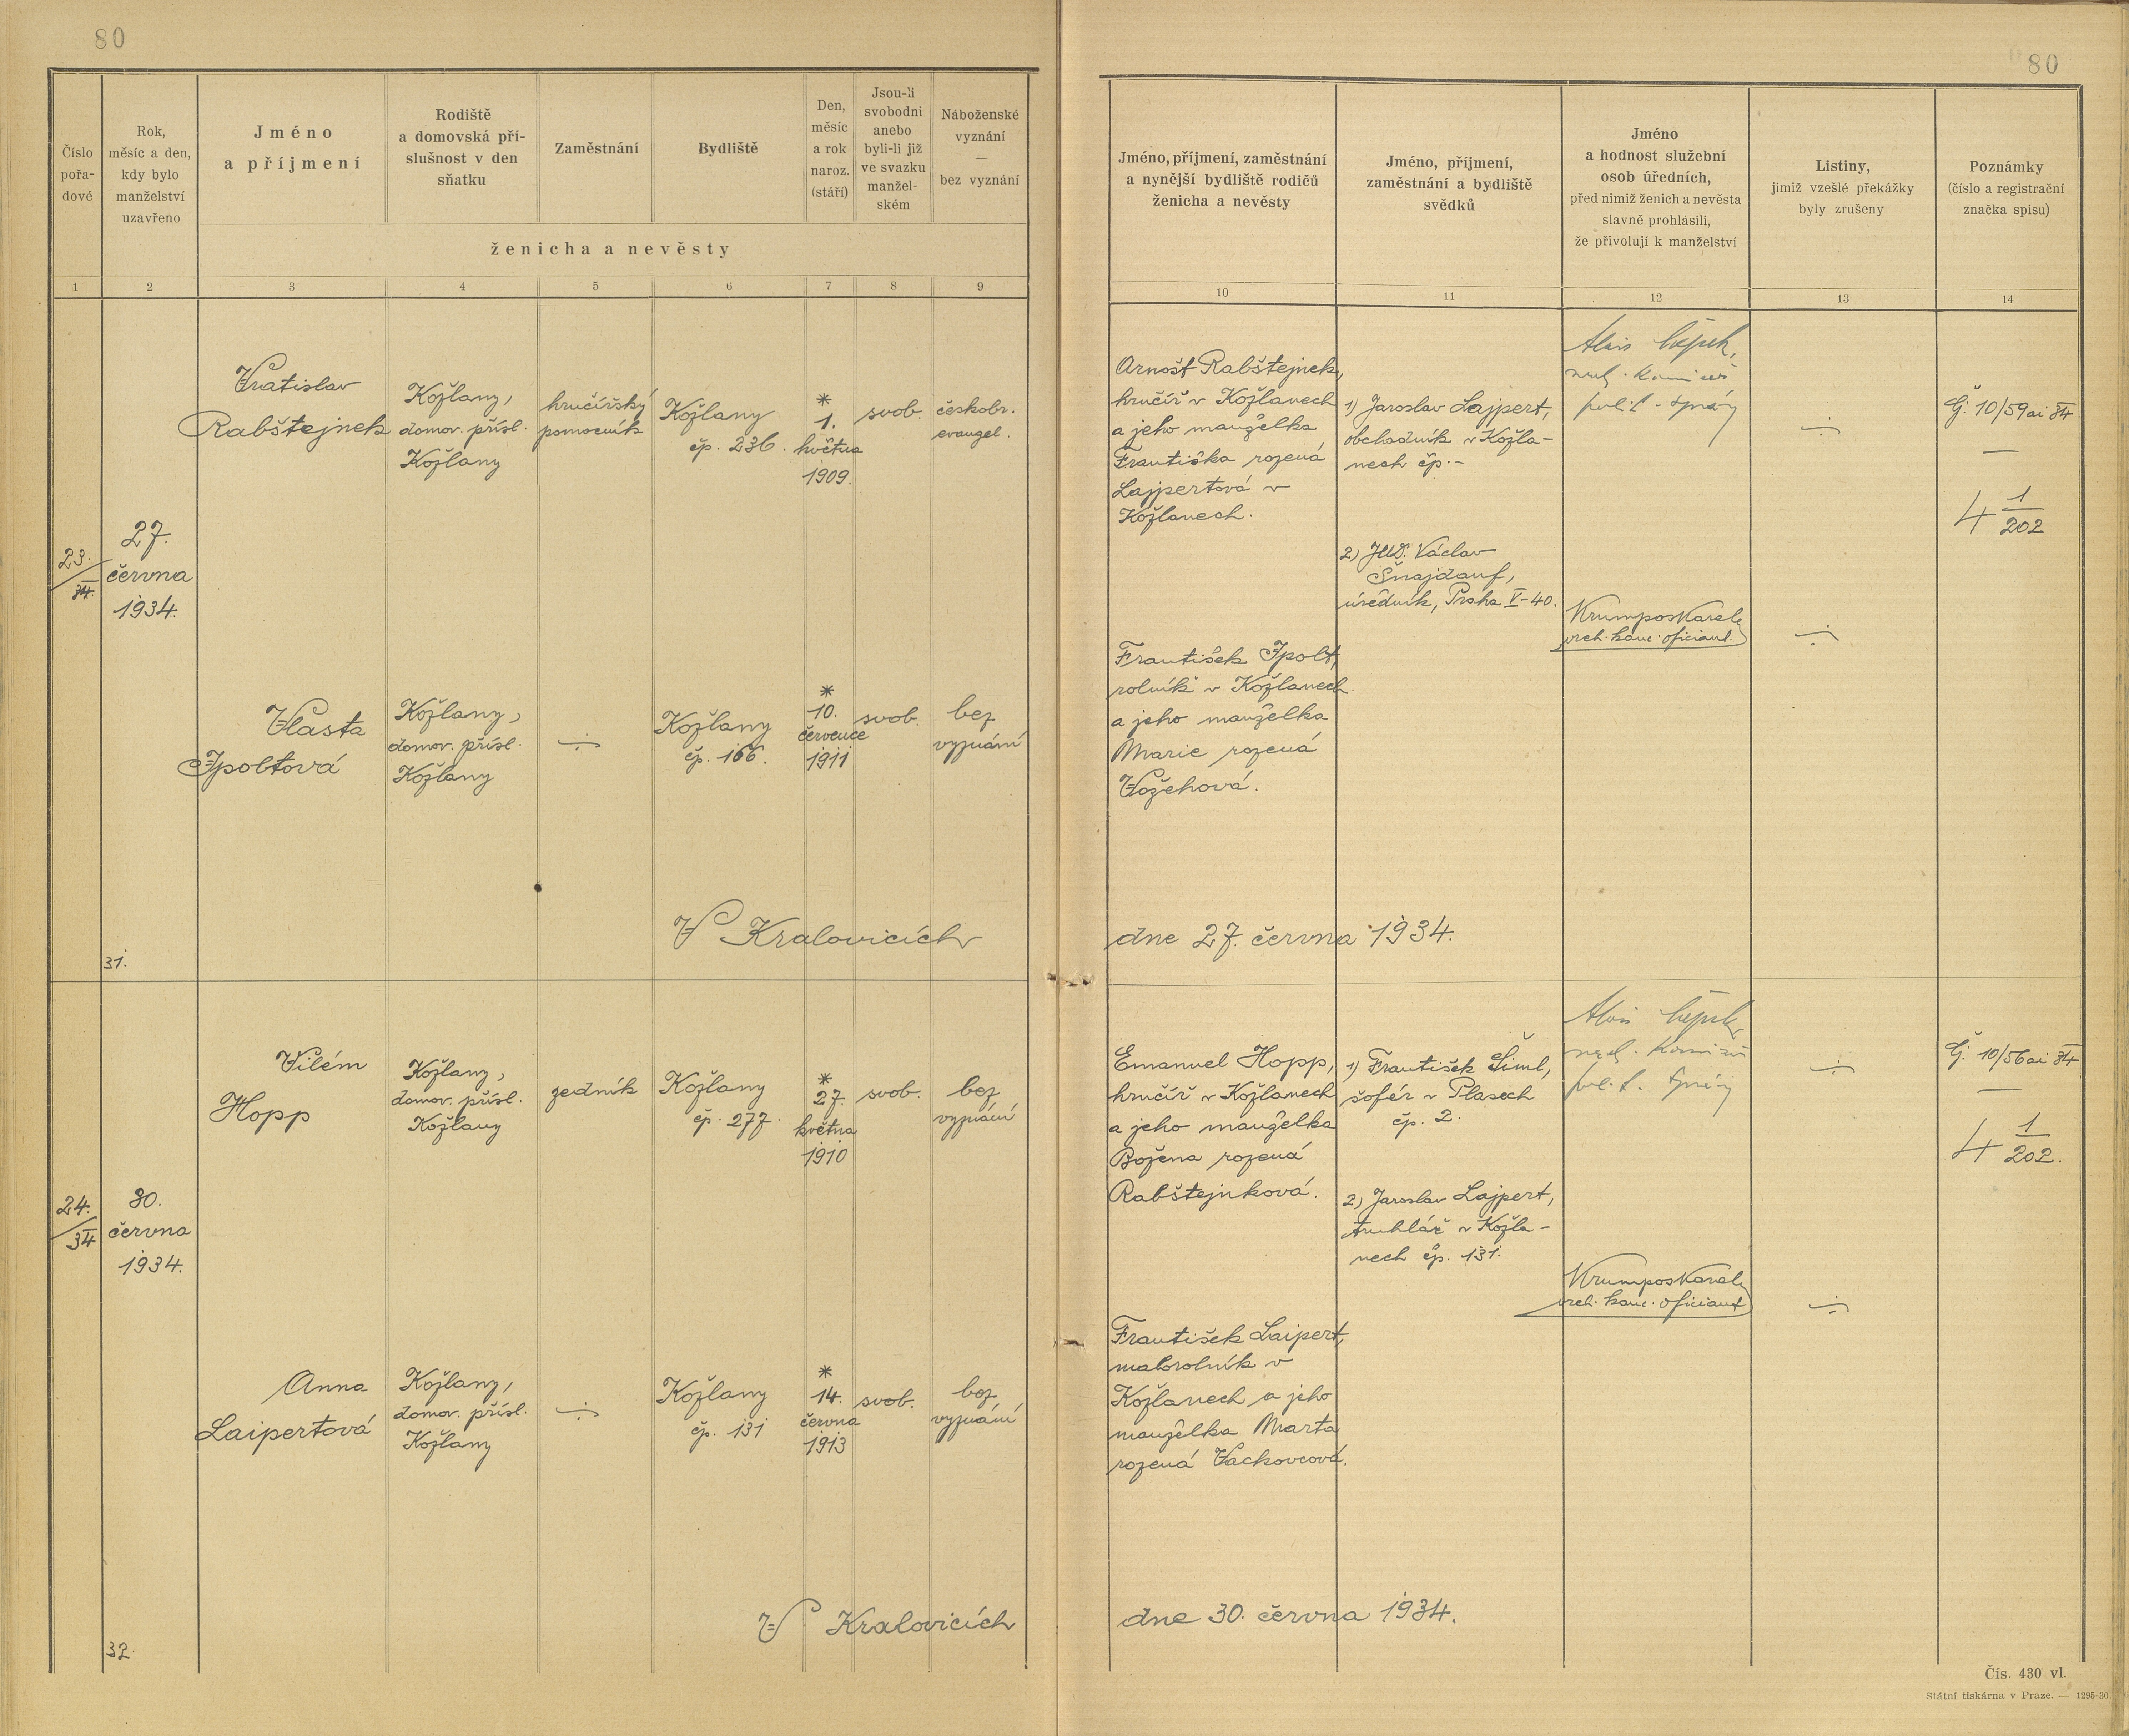 80
80
Číslo
pořa-
dové
Rok,
měsíc a den,
kdy bylo
manželství
uzavřeno
Jméno
a příjmení
Rodiště
a domovská pří-
slušnost v den
sňatku
Zaměstnání
Bydliště
Den,
měsíc
a rok
naroz.
(stáří)
Jsou-li
svobodni
anebo
byli-li již
ve svazku
manžel-
ském
Náboženské
vyznání
—
bez vyznání
ženicha a nevěsty
Jméno, příjmení, zaměstnání
a nynější bydliště rodičů
ženicha a nevěsty
Jméno, příjmení,
zaměstnání a bydliště
svědků
Jméno
a hodnost služební
osob úředních,
před nimiž ženich a nevěsta
slavně prohlásili,
že přivolují k manželství
Listiny,
jimiž vzešlé překážky
byly zrušeny
Poznámky
(číslo a registrační
značka spisu)
1 2 3 4 5 6 7 8 9 10 11 12 13 14
23./34.
27.
června
1934.
Vratislav
Rabštejnek
Kožlany,
domov. přísl.
Kožlany
hručířský
pomocník
Kožlany
čp. 236.
*
1.
května
1909.
svob.
českobr.
evangel.
Arnošt Rabštejnek,
hrnčíř v Kožlanech
a jeho manželka
Františka rozená
Lajpertová v
Kožlanech.
1) Jaroslav Lajpert,
obchodník v Kožla-
nech čp. -
2) JUD. Václav
Šnajdauf,
úředník, Praha V-40.
Alois
polit. správy
Krumpos Karel,
vrch. kanc. oficiant.
Č: 10/59ai 34
—
4 1/202
Vlasta
Ipoltová
Kožlany,
domov. přísl.
Kožlany
Kožlany
čp. 166.
*
10.
července
1911
svob.
bez
vyznání
František Ipolt,
rolník v Kožlanech
a jeho manželka
Marie rozená
Vožehová.
V Kralovicích dne 27. června 1934.
31.
24./34
30.
června
1934.
Vilém
Hopp
Kožlany,
domov. přísl.
Kožlany
zedník
Kožlany
čp. 277.
*
27.
května
1910
svob.
bez
vyznání
Emanuel Hopp,
hrnčíř v Kožlanech
a jeho manželka
Božena rozená
Rabštejnková.
1) František Šiml,
šofér v Plasech
čp. 2.
2) Jaroslav Lajpert,
truhlář v Kožla-
nech čp. 131.
Alois
polit. správy
Krumpos Karel,
vrch. kanc. oficiant
Č: 10/56ai 34
—
4 1/202.
Anna
Laipertová
Kožlany,
domov. přísl.
Kožlany
Kožlany
čp. 131
*
14.
června
1913
svob.
bez
vyznání
František Laipert,
malorolník v
Kožlanech a jeho
manželka Marta
rozená Vackovcová.
V Kralovicích dne 30. června 1934.
32.
Čís. 430 vl.
Státní tiskárna v Praze. — 1295-30.